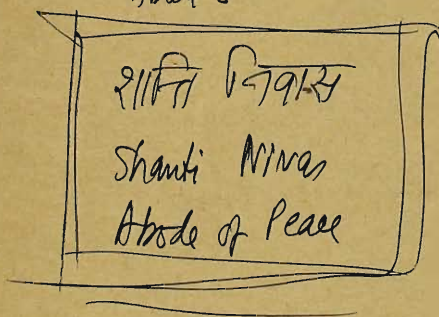 शान्ति निवास
Shanti Nivas
Abode of Peace